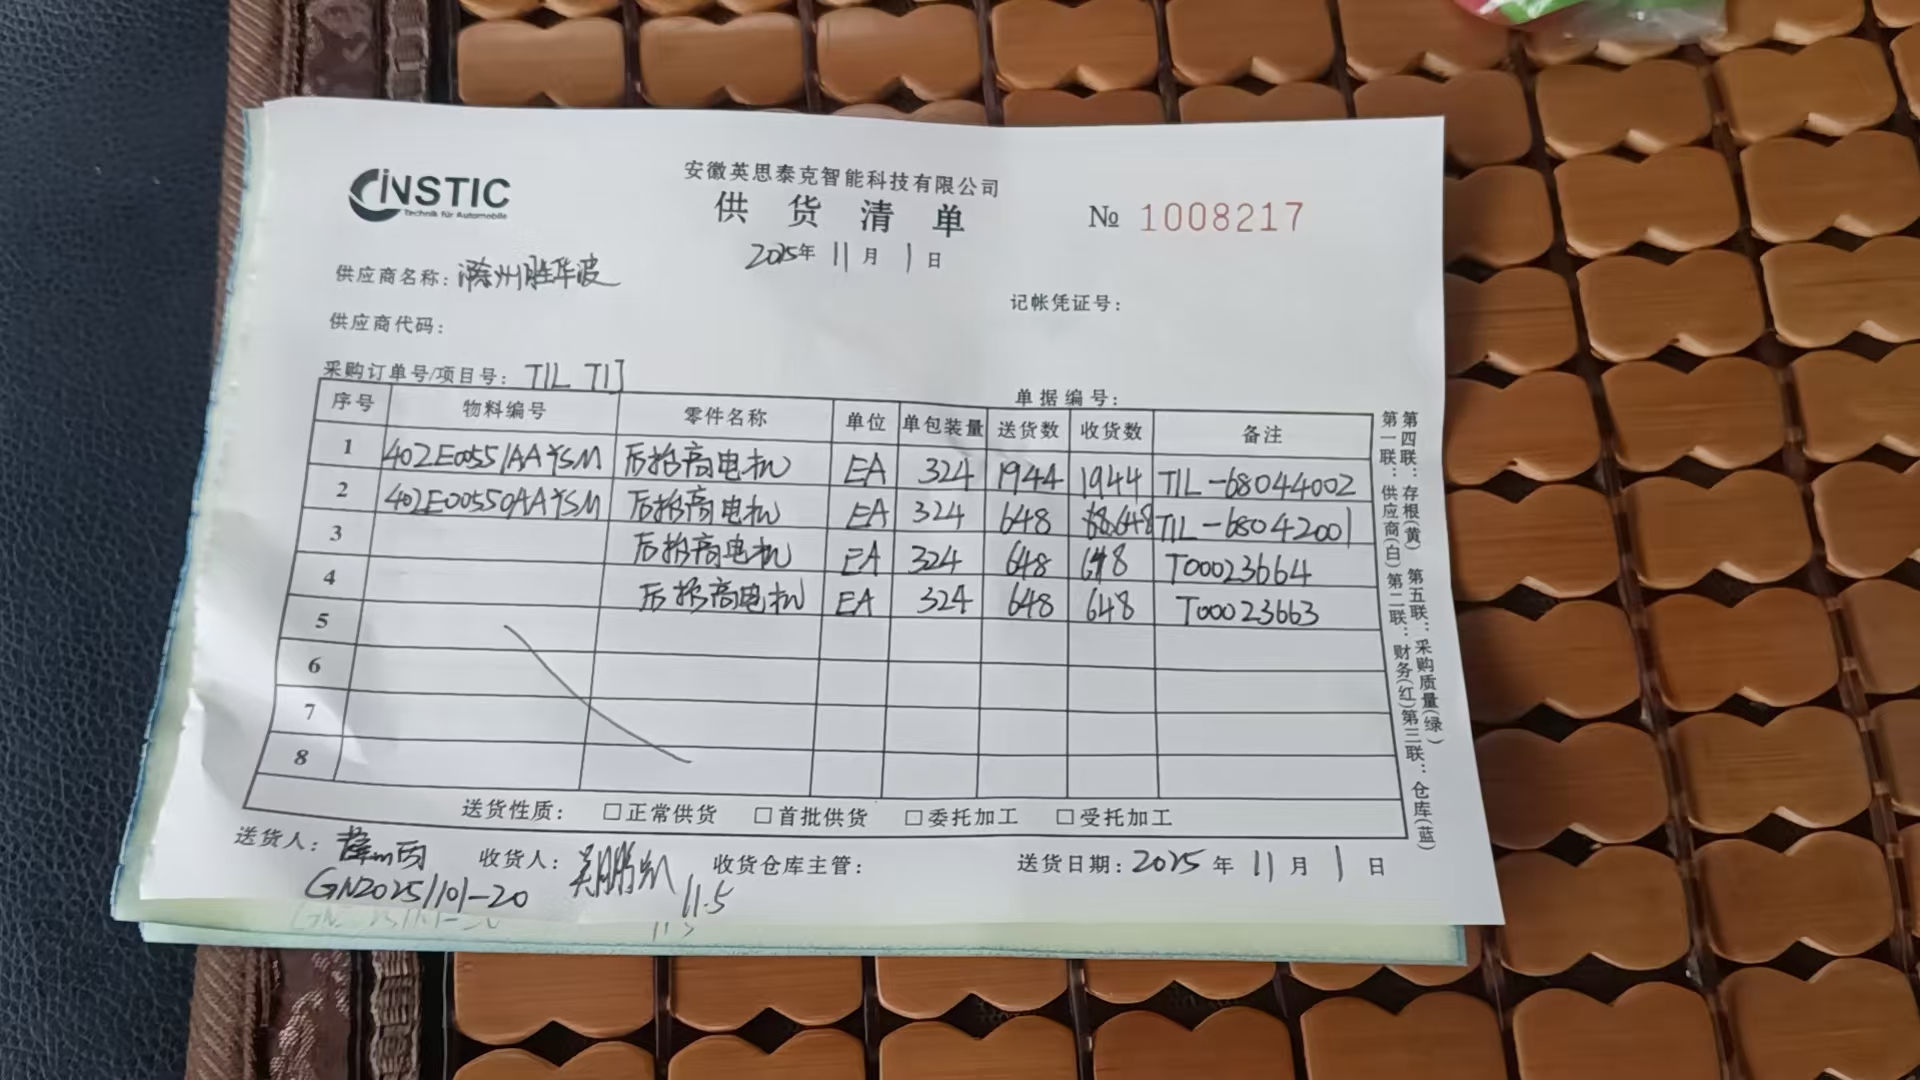 iNSTIC
Technik für Automobile
安徽英思泰克智能科技有限公司
供货清单
№ 1008217
2025年 11月 1日
供应商名称: 滁州胜华波
记帐凭证号:
供应商代码:
采购订单号/项目号: T1L T1J
单据编号:
序号 物料编号 零件名称 单位 单包装量 送货数 收货数 备注
1 402E00551AAYSM 后抬高电机 EA 324 1944 1944 T1L-68044002
2 402E00550AAYSM 后抬高电机 EA 324 648 648 T1L-68042001
3 后抬高电机 EA 324 648 648 T00023664
4 后抬高电机 EA 324 648 648 T00023663
5
6
7
8
送货性质: □正常供货 □首批供货 □委托加工 □受托加工
送货人: 收货人: 收货仓库主管: 送货日期: 2025年 11月 1日
GN20251101-20 11.5
第一联: 供应商(白) 第二联: 财务(红) 第三联: 仓库(蓝)
第四联: 存根(黄) 第五联: 采购质量(绿)